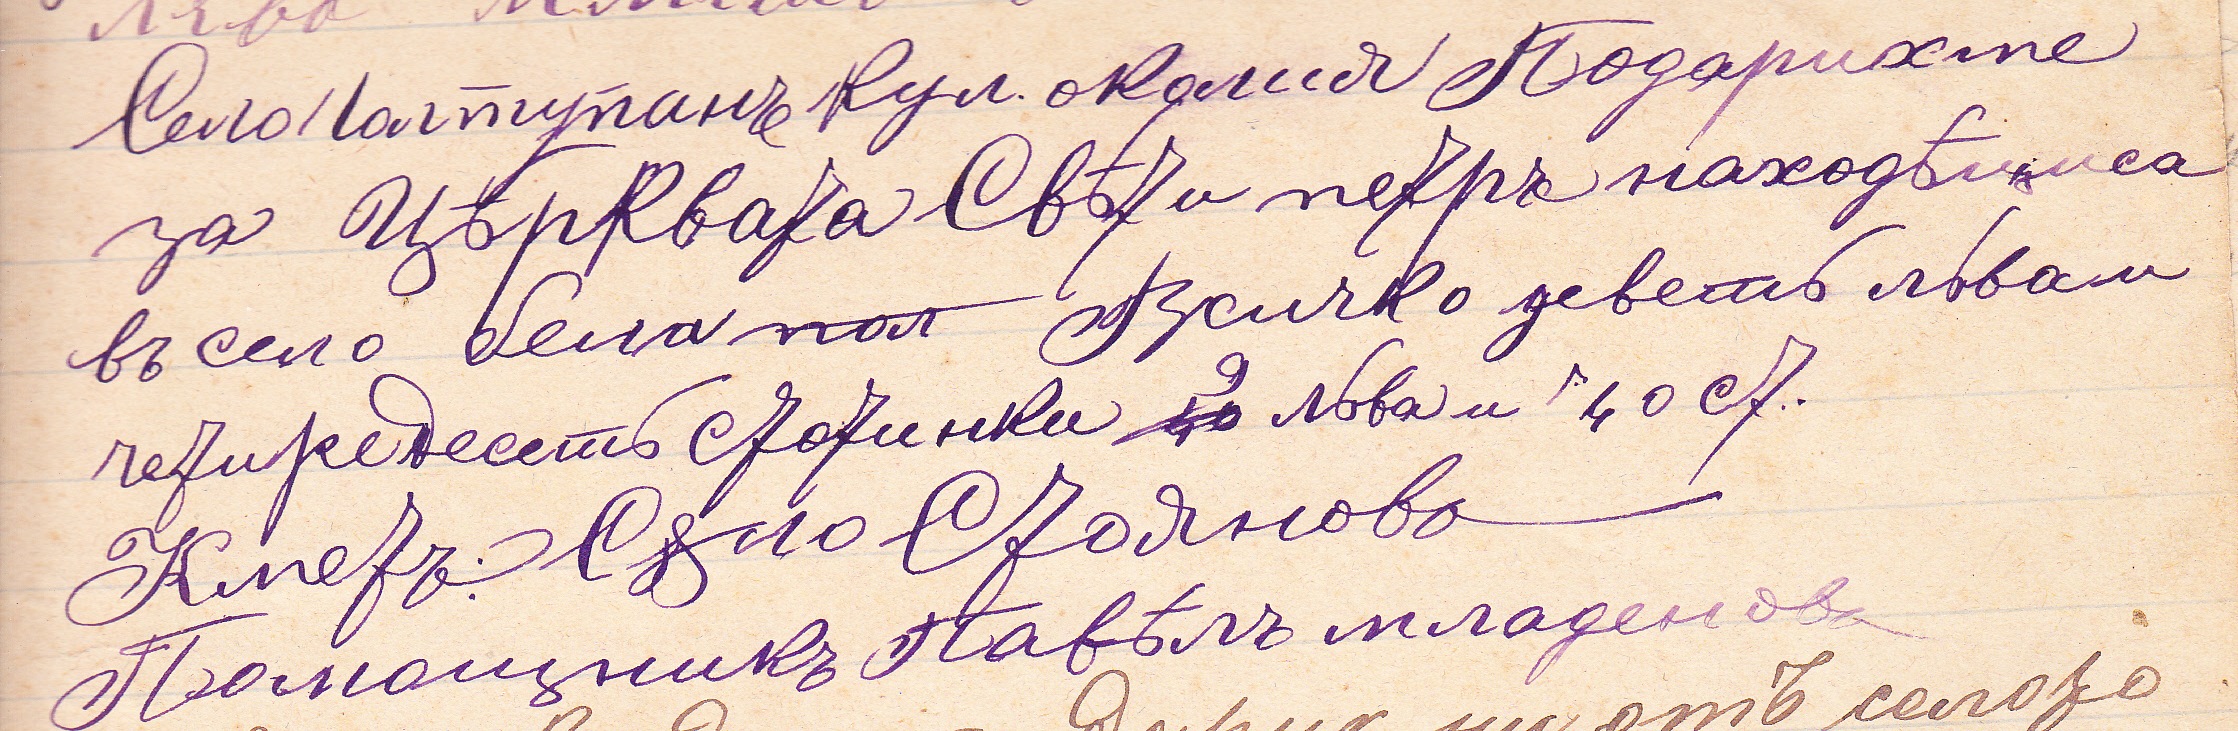 Село кул. околия Подарихме
за Църквата Свѣти петръ находѣщиса
въ село бела Всичко деветь лѣва и
четиредесеть стотинки 9 лѣва и 40 ст.
Кметъ: Стоянова
Помощникъ Павѣлъ младенова
отъ селото